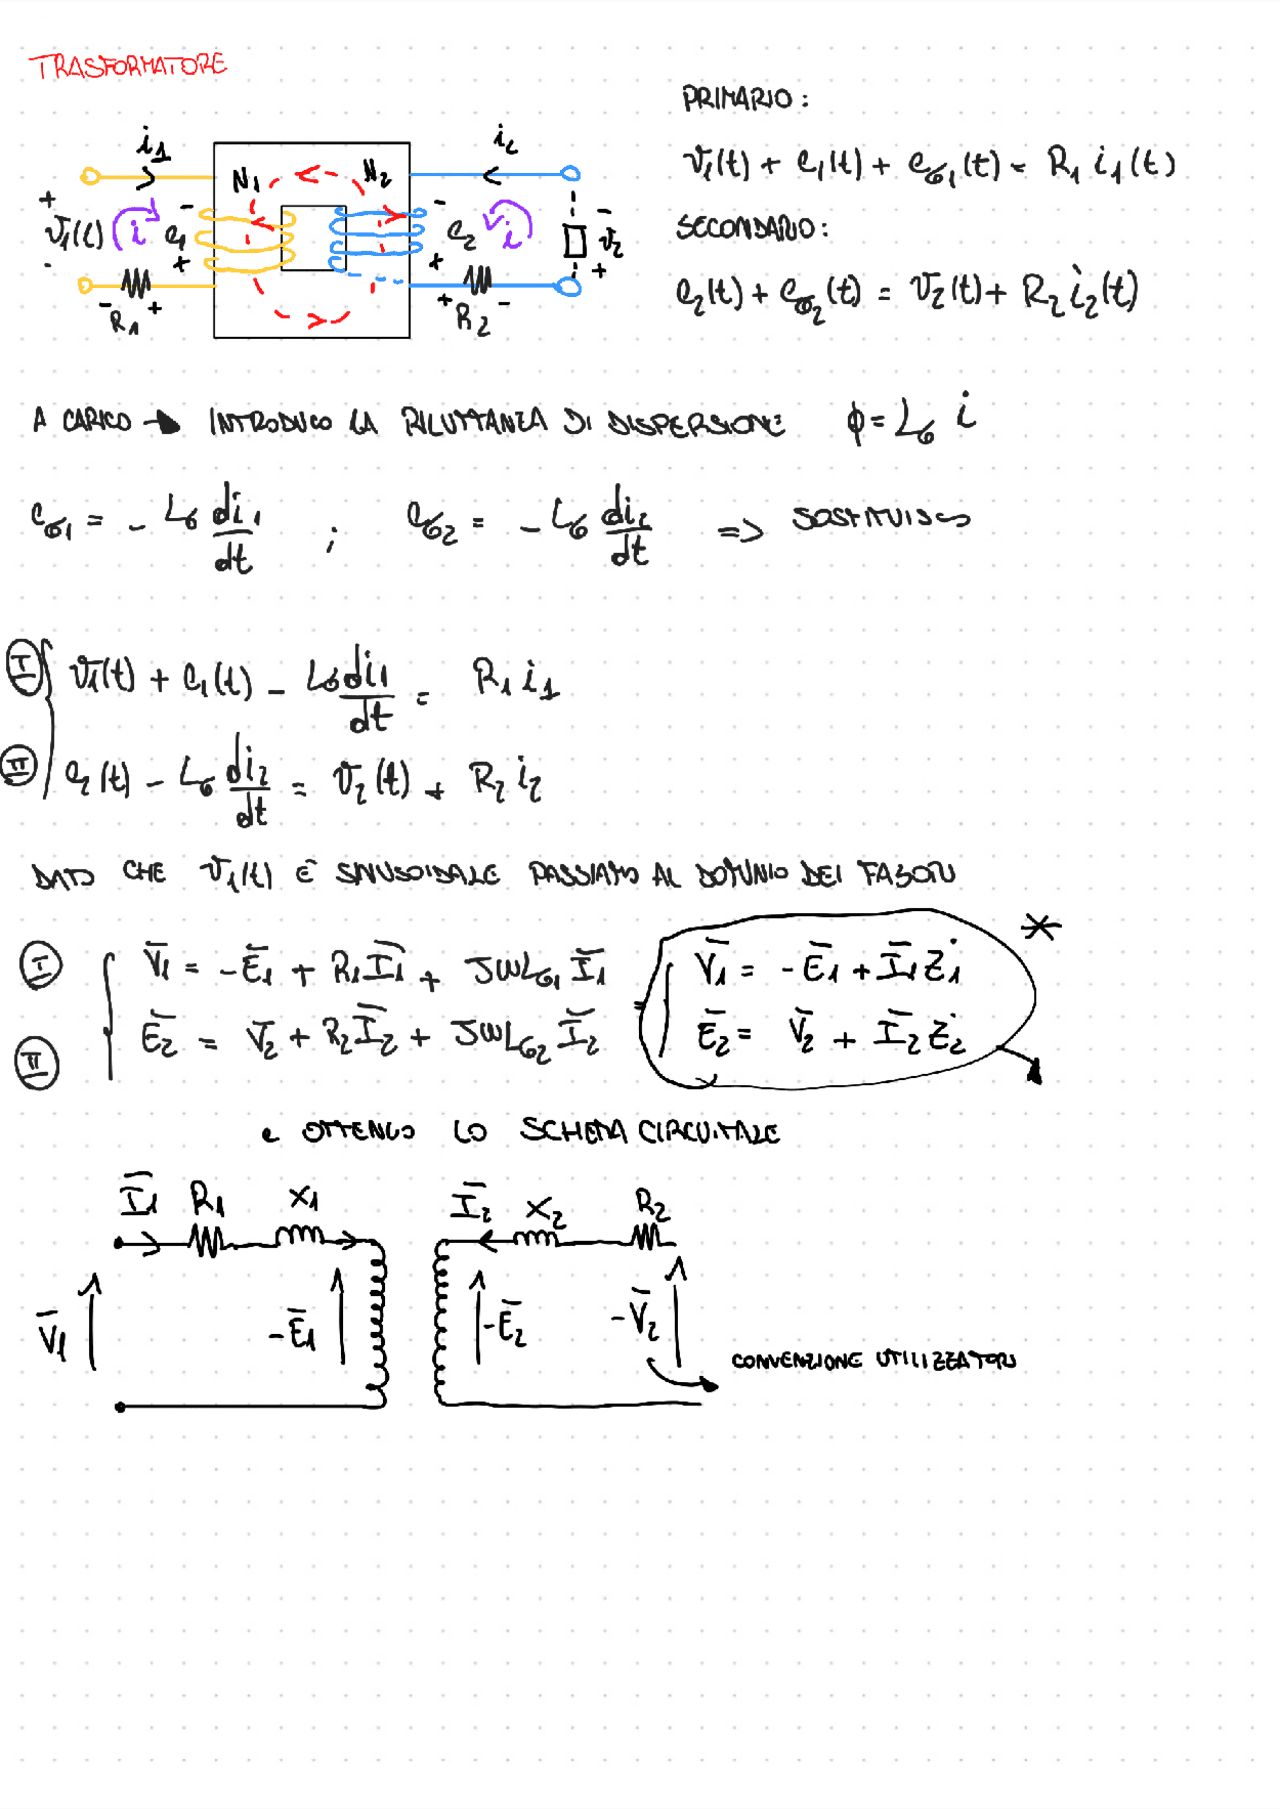 TRASFORMATORE
PRIMARIO:
i1 i2
N1 N2
v1(t) + e1(t) + eσ1(t) = R1 i1(t)
+ v1(t) - i e1 - + e2 - + i v2 - +
SECONDARIO:
- R1 + + R2 -
e2(t) + eσ2(t) = v2(t) + R2 i2(t)
A CARICO → INTRODUCO LA RILUTTANZA DI DISPERSIONE ϕ = Lσ i
eσ1 = - Lσ di1/dt ; eσ2 = - Lσ di2/dt => SOSTITUISCO
I v1(t) + e1(t) - Lσ di1/dt = R1 i1
II e2(t) - Lσ di2/dt = v2(t) + R2 i2
DATO CHE v1(t) È SINUSOIDALE PASSIAMO AL DOMINIO DEI FASORI
I V̄1 = -Ē1 + R1Ī1 + JωLσ1 Ī1 = V̄1 = -Ē1 + Ī1 Ż1 *
II Ē2 = V̄2 + R2Ī2 + JωLσ2 Ī2 Ē2 = V̄2 + Ī2 Ż2
e OTTENGO LO SCHEMA CIRCUITALE
Ī1 R1 X1 Ī2 X2 R2
V̄1 -Ē1 -Ē2 -V̄2
CONVENZIONE UTILIZZATORI